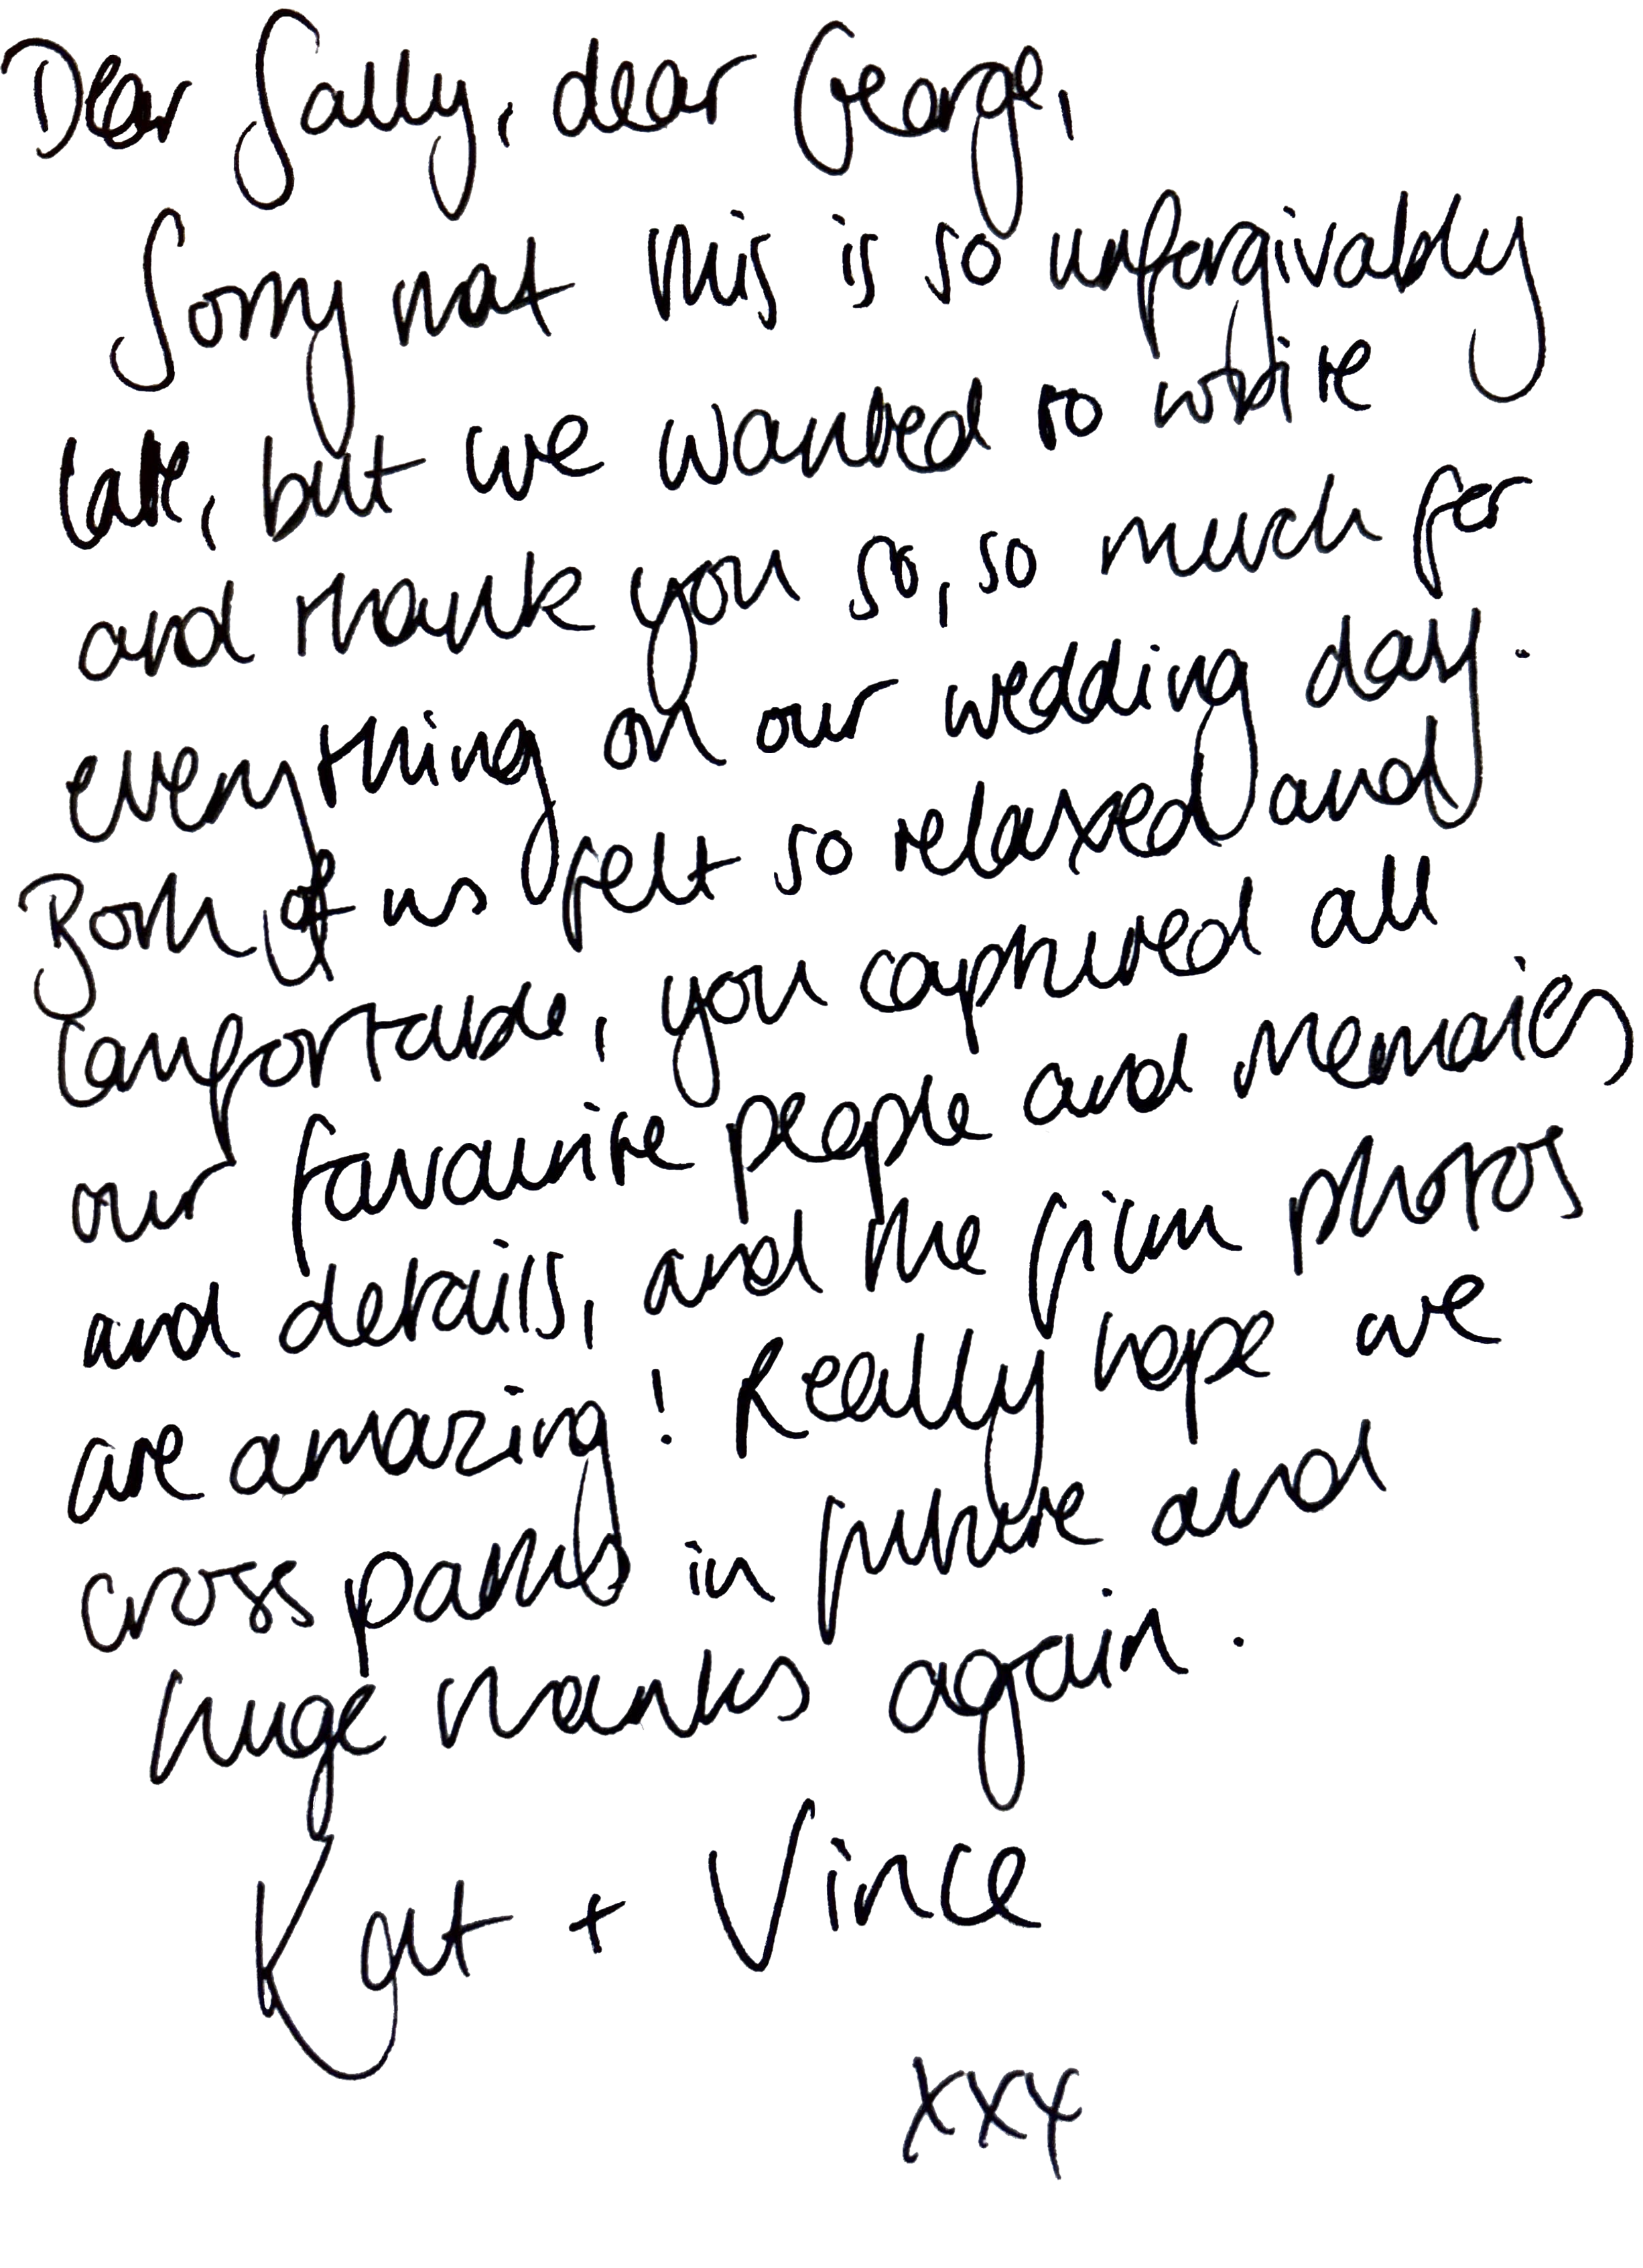 Dear Sally, dear George,
Sorry that this is so unforgivably
late, but we wanted to write
and thank you so, so much for
everything on our wedding day.
Both of us felt so relaxed and
comfortable, you captured all
our favourite people and memories
and details, and the film photos
are amazing! Really hope we
cross paths in future and
huge thanks again.
Kat + Vince
xxx